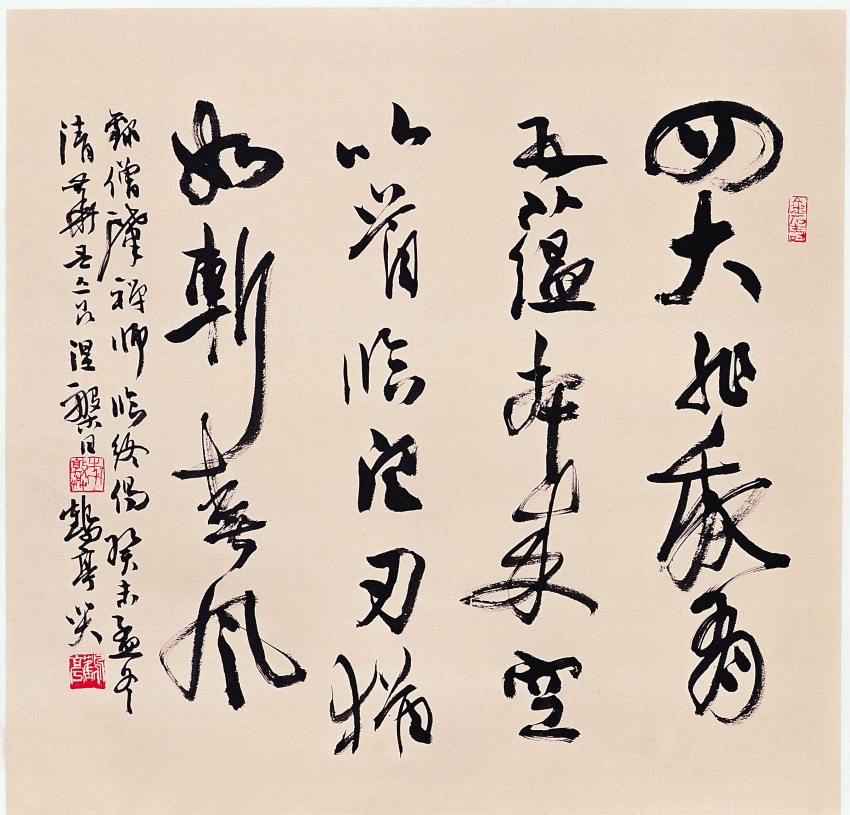 四大非我有
五蘊本來空
以首臨白刃猶
如斬春風
錄僧肇禪師臨終偈癸未孟冬
清 涅槃日 鶴亭笑